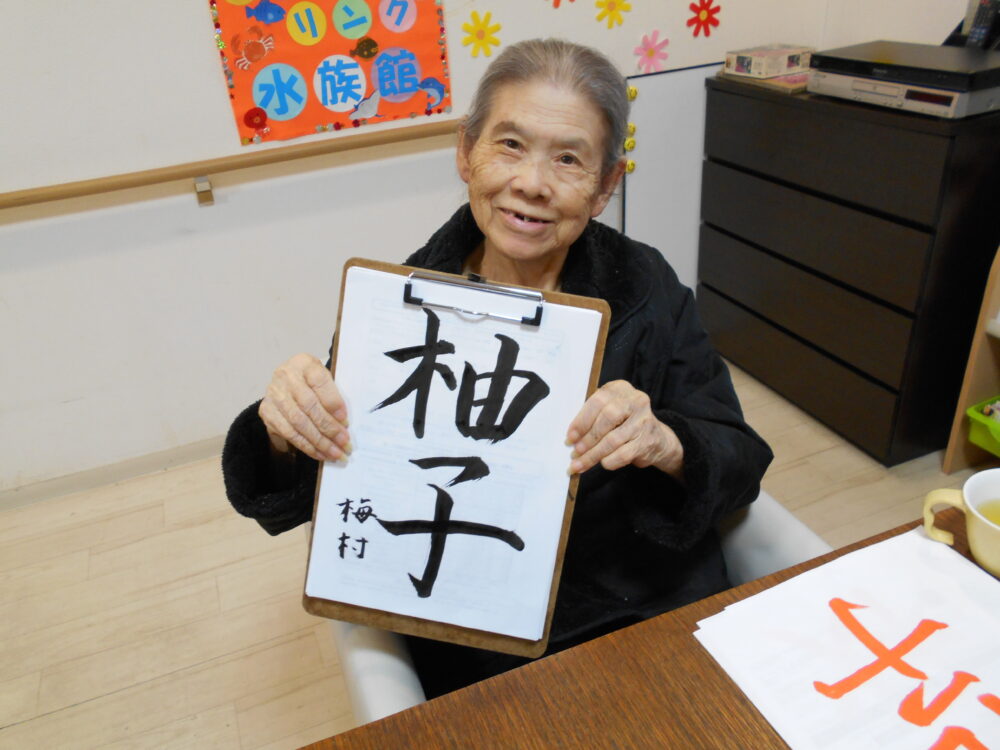 リンク
水族館
柚子
梅村